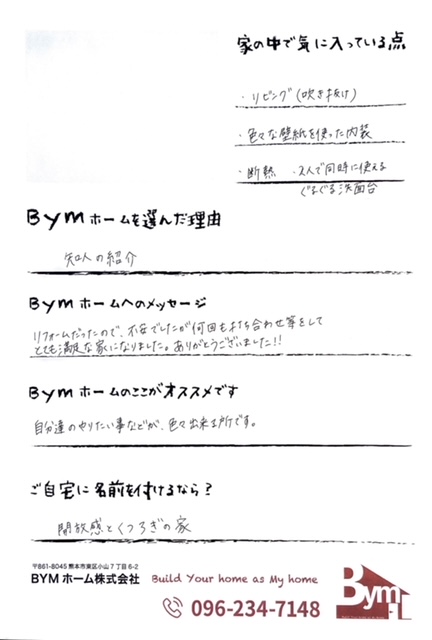 家の中で気に入っている点
・リビング(吹き抜け)
・色々な壁紙を使った内装
・断熱 ・2人で同時に使える
ぐるぐる洗面台
Bymホームを選んだ理由
知人の紹介
Bymホームへのメッセージ
リフォームだったので、不安でしたが何回も打ち合わせ等をして
とても満足な家になりました。ありがとうございました!!
Bymホームのここがオススメです
自分達のやりたい事などが、色々出来る所です。
ご自宅に名前を付けるなら?
開放感とくつろぎの家
〒861-8045 熊本市東区小山7丁目6-2
BYMホーム株式会社
Build Your home as My home
096-234-7148
Bym